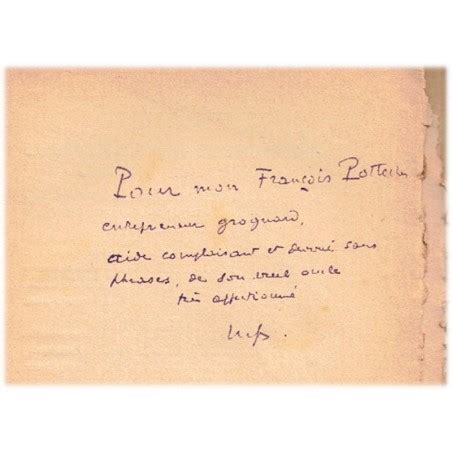 Pour mon François Pottecher
entrepreneur grognard,
aide complaisant et dévoué sans
phrases, de son vieil oncle
très affectionné